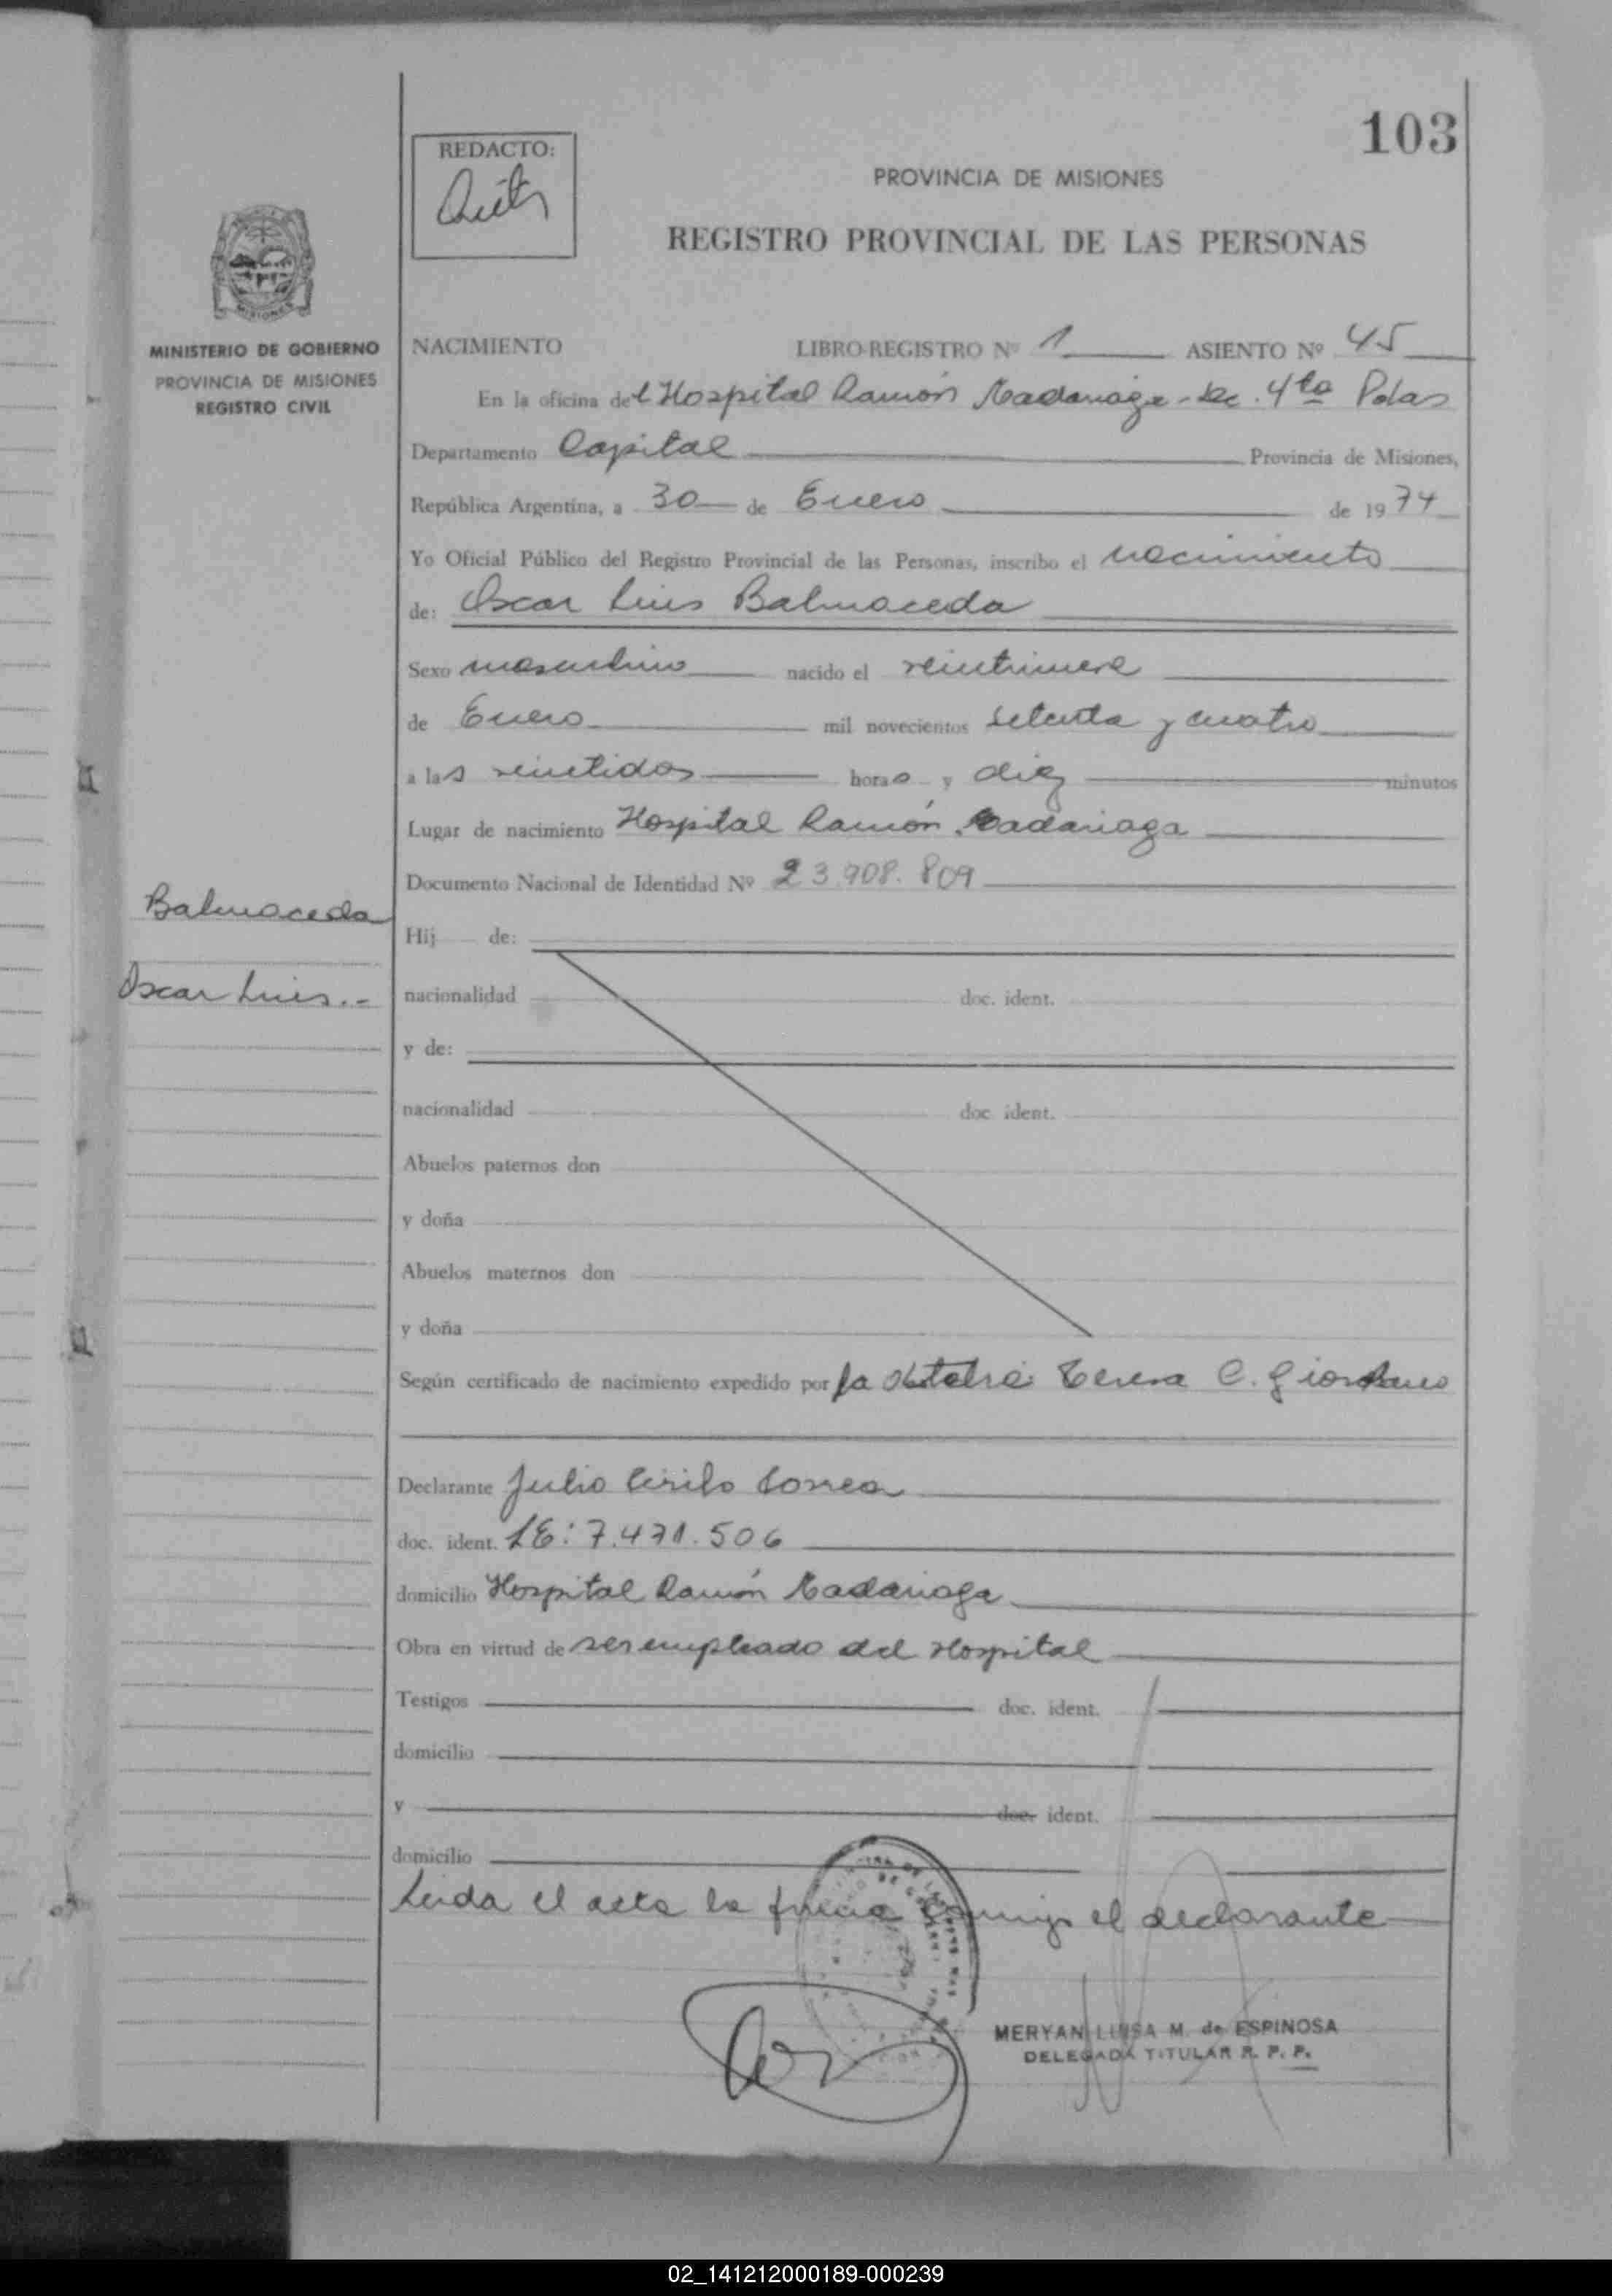 103
REDACTO:
PROVINCIA DE MISIONES
REGISTRO PROVINCIAL DE LAS PERSONAS
MISIONES
MINISTERIO DE GOBIERNO
PROVINCIA DE MISIONES
REGISTRO CIVIL
NACIMIENTO LIBRO-REGISTRO Nº 1 ASIENTO Nº 45
En la oficina del Hospital Ramón Madariaga - Sec. 4ta Pdas
Departamento Capital Provincia de Misiones,
República Argentina, a 30 de Enero de 1974
Yo Oficial Público del Registro Provincial de las Personas, inscribo el nacimiento
de: Oscar Luis Balmaceda
Sexo masculino nacido el veintinueve
de Enero mil novecientos setenta y cuatro
a las veintidos horas y diez minutos
Lugar de nacimiento Hospital Ramón Madariaga
Documento Nacional de Identidad Nº 23.908.809
Balmaceda
Oscar Luis.-
Hij de:
nacionalidad doc. ident.
y de:
nacionalidad doc. ident.
Abuelos paternos don
y doña
Abuelos maternos don
y doña
Según certificado de nacimiento expedido por la Obstetra: Teresa C. Giordano
Declarante Julio Cirilo Correa
doc. ident. LE: 7.471.506
domicilio Hospital Ramón Madariaga
Obra en virtud de ser empleado del Hospital
Testigos doc. ident.
domicilio
y doc. ident.
domicilio
Leida el acta la firma conmigo el declarante
MERYAN LUISA M. de ESPINOSA
DELEGADA TITULAR R. P. P.
02_141212000189-000239